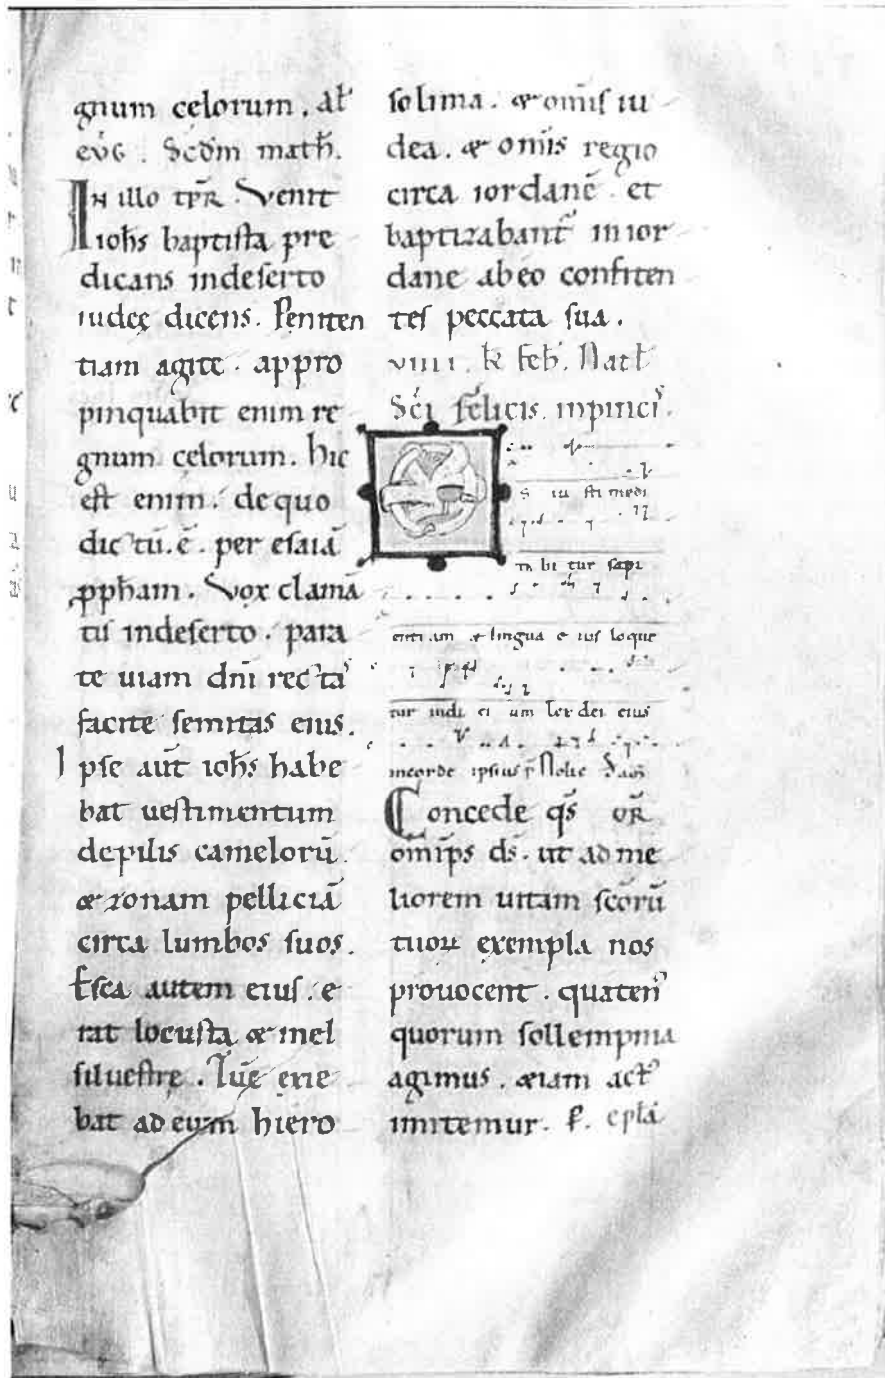 gnum celorum . Al̃
eṽg . Scdm math̃.
In illo tp̃r . Venit
ioh̃s baptista pre
dicans indeserto
iudeę dicens . Peniten
tiam agite . appro
pinquabit enim re
gnum celorum . hic
est enim . de quo
dictũ . ẽ . per esaiã
pp̃ham . Vox clamã
tis indeserto . para
te uiam dñi rectã
facite semitas eius .
Ipse aũt ioh̃s habe
bat uestimentum
depilis camelorũ .
& zonam pelliciã
circa lumbos suos .
Esca autem eius . e
rat locusta & mel
siluestre . Tũc exie
bat ad eum hiero
solima . & om̃is iu
dea . & om̃is regio
circa iordanẽ . et
baptizabant᷑ in ior
dane ab eo confiten
tes peccata sua .
viiii . k feb̃ . Nat̃
Sc̃i felicis . inpinci᷑ .
Os iu sti medi
ta bi tur sapi
enti am & lingua e ius loque
tur iudi ci um Lex dei eius
incorde ipsius p̃ Nolie
Concede q̃s or̃
om̃ps d̃s . ut ad me
liorem uitam sc̃orũ
tuoꝝ exempla nos
prouocent . quaten᷒
quorum sollempnia
agimus . &iam act᷒
imitemur . P̃ . epl̃a